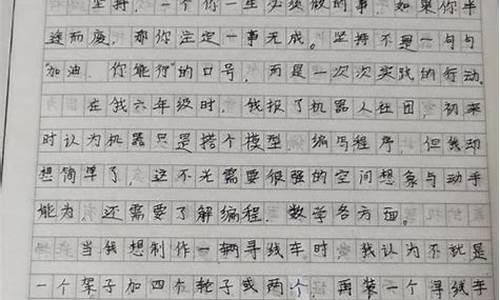 坚持，一个你一生必须做的事，如果你半
途而废，那你注定一事无成。坚持不是一句句
“加油，你能行”的口号，而是一次次实践的行动。
在我六年级时，我报了机器人社团，初来
时认为机器只是搭个模型，编写程序，但我却
想简单了，这不光需要很强的空间想象与动手
能为，还需要了解编程，数学各方面。
当我想制作一辆寻线车时，我认为不就是
一个架子加四个轮子或两个，再装一个浔线车